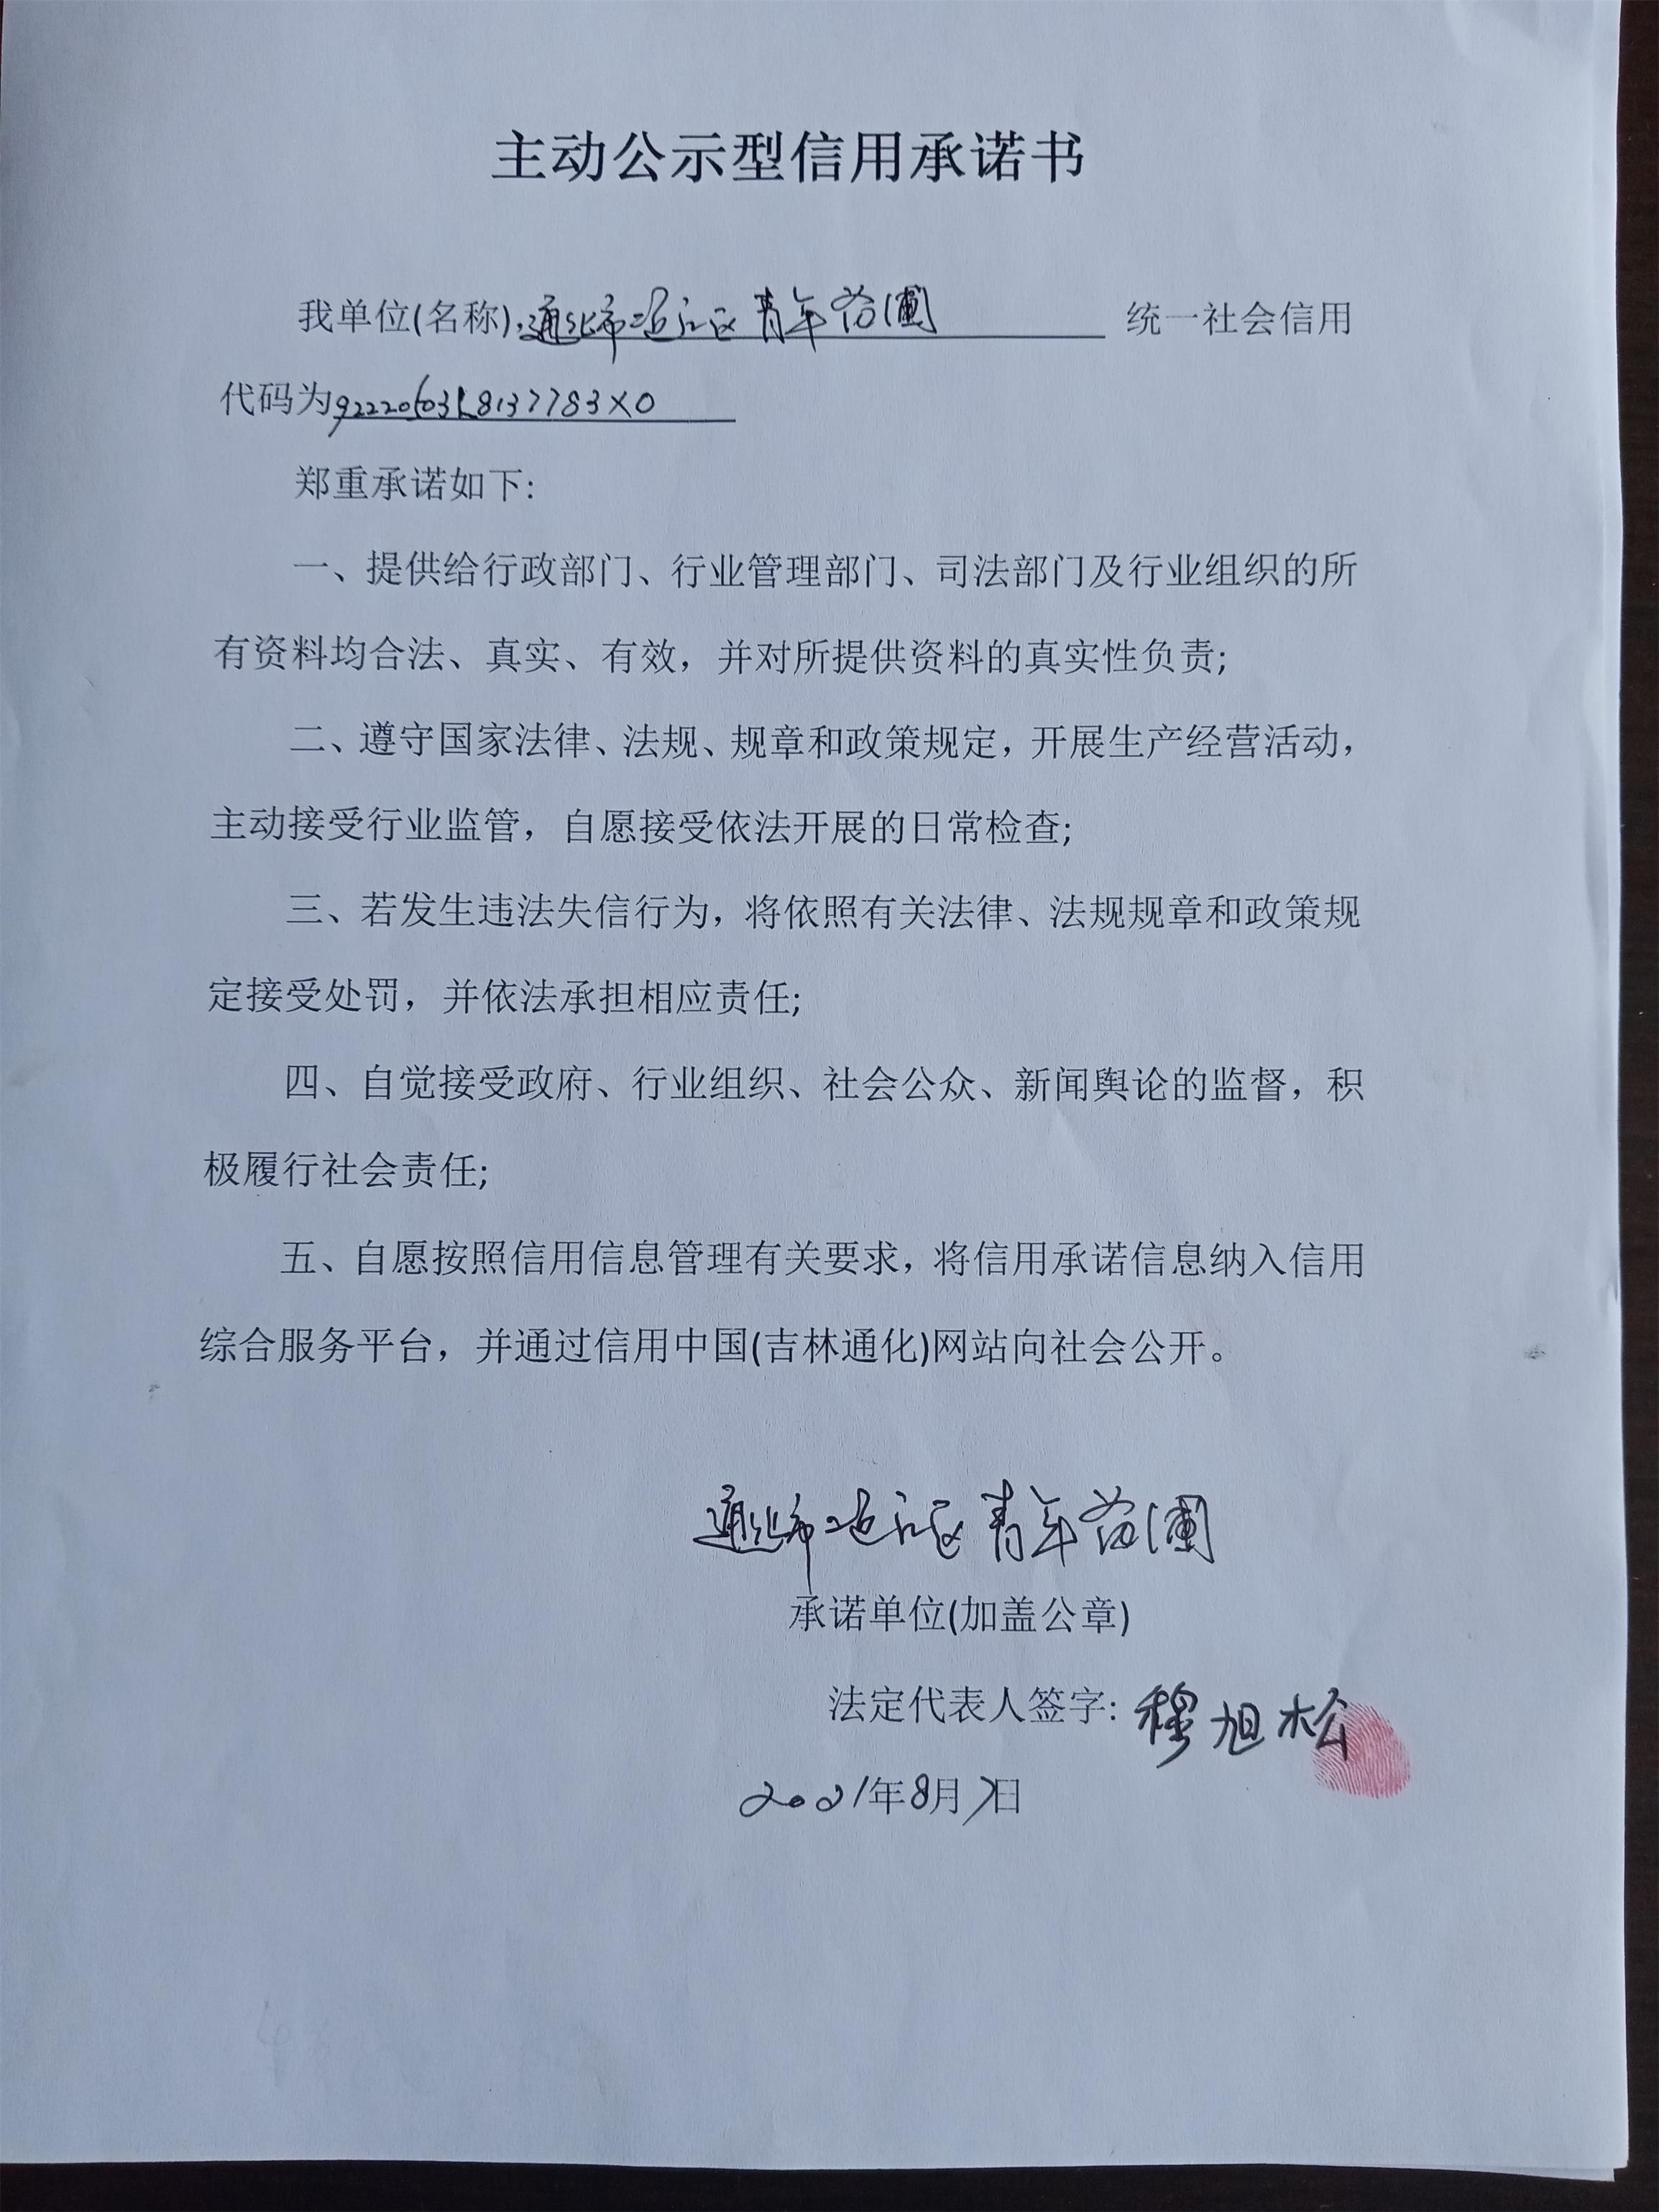 主动公示型信用承诺书
我单位(名称),通化市二道江区青年苗圃 统一社会信用
代码为 92220603L8137783X0
郑重承诺如下:
一、提供给行政部门、行业管理部门、司法部门及行业组织的所
有资料均合法、真实、有效，并对所提供资料的真实性负责;
二、遵守国家法律、法规、规章和政策规定，开展生产经营活动，
主动接受行业监管，自愿接受依法开展的日常检查;
三、若发生违法失信行为，将依照有关法律、法规规章和政策规
定接受处罚，并依法承担相应责任;
四、自觉接受政府、行业组织、社会公众、新闻舆论的监督，积
极履行社会责任;
五、自愿按照信用信息管理有关要求，将信用承诺信息纳入信用
综合服务平台，并通过信用中国(吉林通化)网站向社会公开。
通化市二道江区青年苗圃
承诺单位(加盖公章)
法定代表人签字: 穆旭松
2021年8月7日